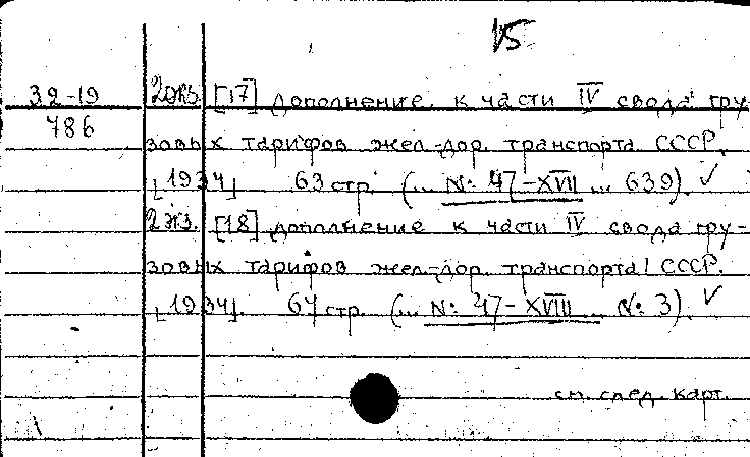 15
32-19 2экз. [17] Дополнение к части IV свода гру-
786
зовых тарифов жел-дор. транспорта СССР.
[1934] 63 стр. (... № 47-XVII ... 639). ✓
2 экз. [18] Дополнение к части IV свода гру-
зовых тарифов жел-дор. транспорта СССР.
[1934]. 67 стр. (... № 47-XVIII ... № 3). ✓
см. след. карт.